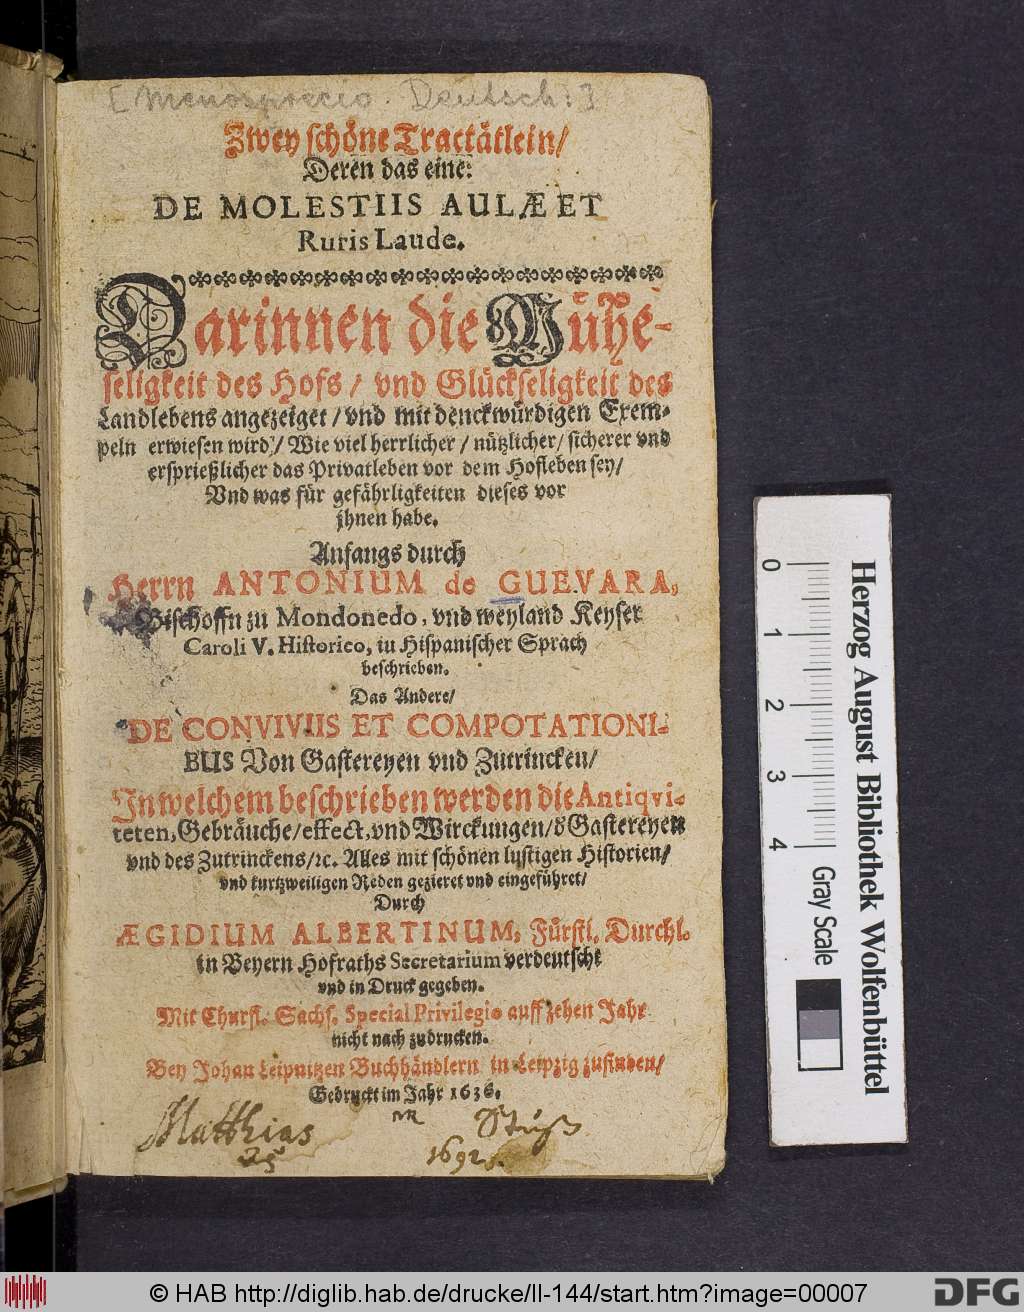 [Menosprecio. Deutsch:]
Zwey schöne Tractätlein/
Deren das eine:
DE MOLESTIIS AULÆ ET
Ruris Laude.
Darinnen die Mühe-
seligkeit des Hofs/ vnd Glückseligkeit des
Landlebens angezeiget/ vnd mit denckwürdigen Exem-
peln erwiesen wird/ Wie viel herrlicher/ nützlicher/ sicherer vnd
ersprießlicher das Privatleben vor dem Hofleben sey/
Vnd was für gefährligkeiten dieses vor
jhnen habe.
Anfangs durch
Herrn ANTONIUM de GUEVARA,
Bischoffn zu Mondonedo, vnd weyland Keyser
Caroli V. Historico, in Hispanischer Sprach
beschrieben.
Das Andere/
DE CONVIVIIS ET COMPOTATIONI-
BUS Von Gastereyen vnd Zutrincken/
In welchem beschrieben werden die Antiqvi-
teten, Gebräuche/ effect, vnd Wirckungen/ d Gastereyen
vnd des Zutrinckens/ ꝛc. Alles mit schönen lustigen Historien/
vnd kurtzweiligen Reden gezieret vnd eingeführet/
Durch
ÆGIDIUM ALBERTINUM, Fürstl. Durchl.
in Beyern Hofraths Secretarium verdeutscht
vnd in Druck gegeben.
Mit Churfl. Sächs. Special Privilegio auff zehen Jahr
nicht nach zudrucken.
Bey Johan Leipnitzen Buchhändlern in Leipzig zufinden/
Gedruckt im Jahr 1636.
Matthias
1692
0 1 2 3 4
Herzog August Bibliothek Wolfenbüttel
Gray Scale
© HAB http://diglib.hab.de/drucke/ll-144/start.htm?image=00007
DFG